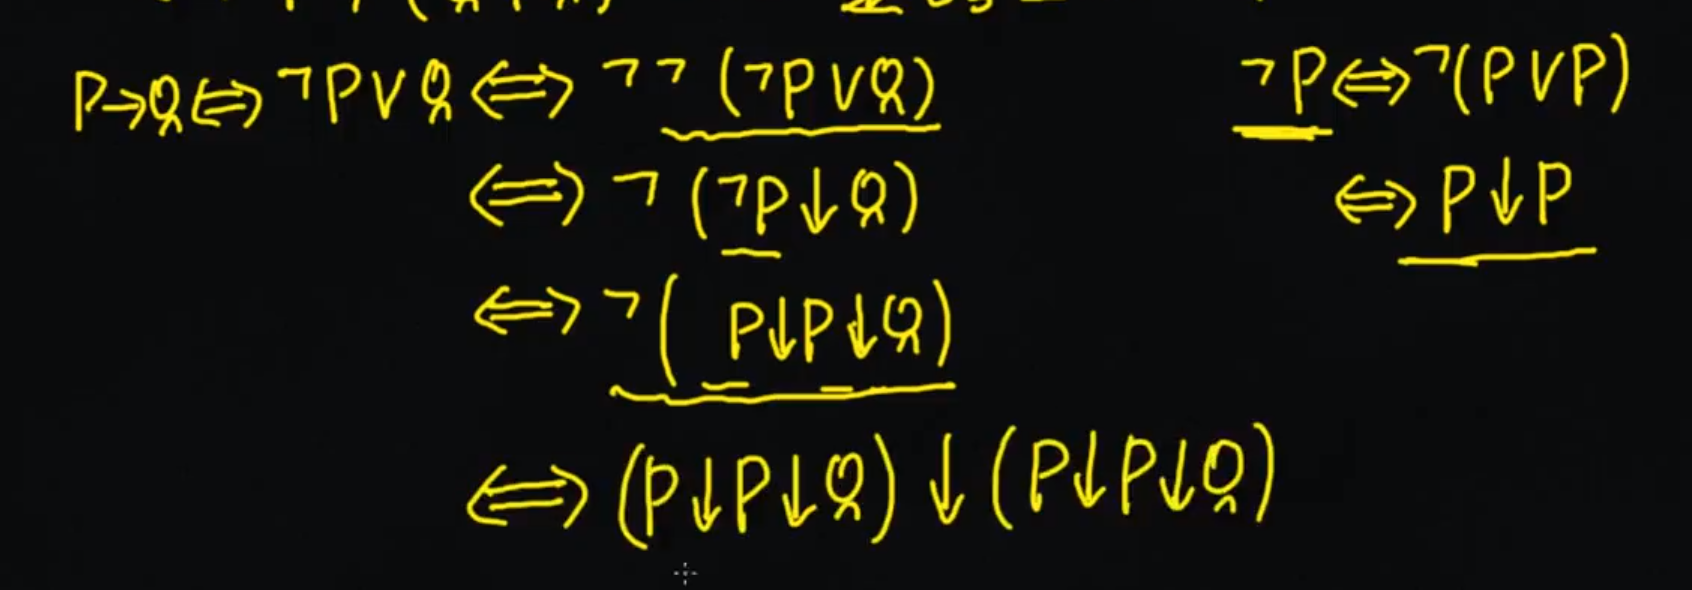 P→Q⇔¬P∨Q⇔¬¬(¬P∨Q)
⇔¬(¬P↓Q)
⇔¬(P↓P↓Q)
⇔(P↓P↓Q)↓(P↓P↓Q)
¬P⇔¬(P∨P)
⇔P↓P